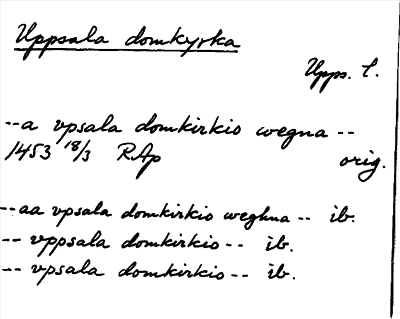 Uppsala domkyrka
Upps. l.
--a vpsala domkirkio wegna --
1453 18/3 RAp orig.
--aa vpsala domkirkio weghna -- ib.
-- vppsala domkirkio -- ib.
-- vpsala domkirkio -- ib.